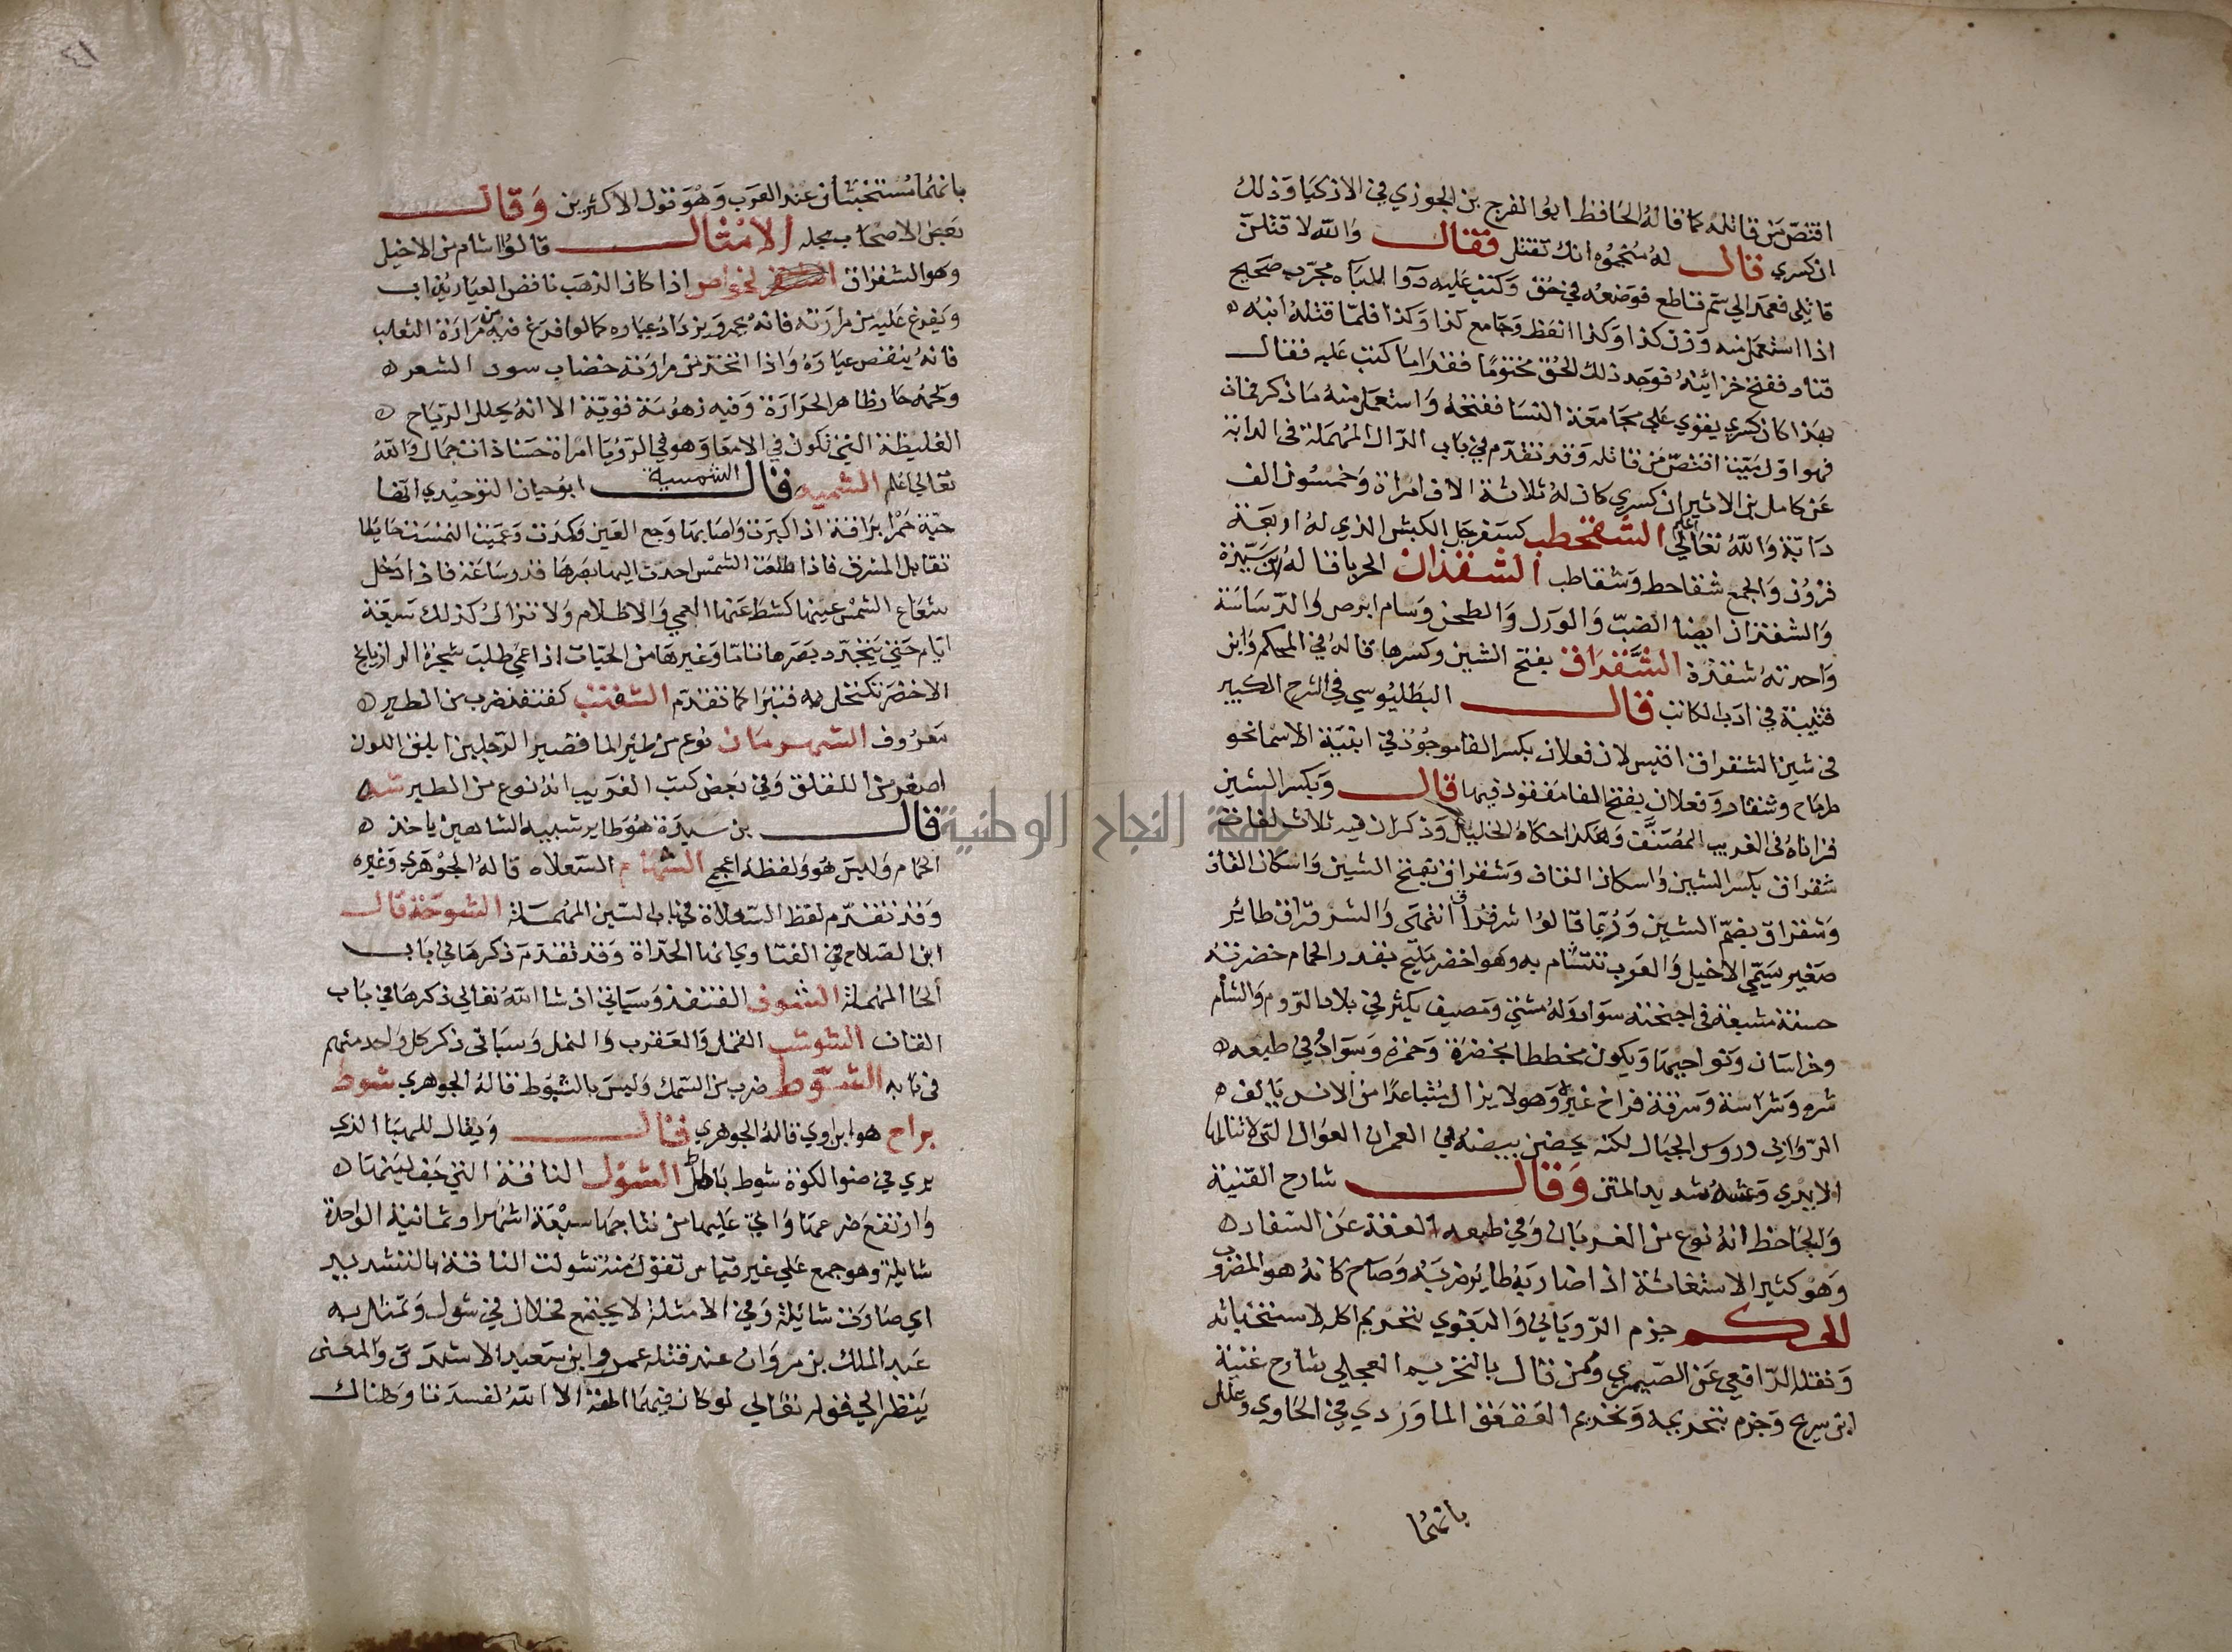 اقتصّ من قاتله كما قاله الحافظ ابو الفرج بن الجوزي في الاذكيا وذلك
ان كسري قال له منجموه انك تقتل فقال والله لاقتلن
قاتلي فعمد الي سم قاطع فوضعه في حق وكتب عليه دوا للباه مجرب صحيح
اذا استعمل منه وزن كذا وكذا انعظ وجامع كذا وكذا فلما قتله ابنه
قناد ففتح خزائنه فوجد ذلك الحق مختوما فقرا ما كتب عليه فقال
بهذا كان كسري يقوي علي مجامعة النسا ففتحه واستعمل منه ما ذكر فمات
فهو اول ميت اقتص من قاتله وقد تقدم في باب الدال المهملة في الدابة
عن كامل بن الاثير ان كسري كان له ثلاثة الاف امراة وخمسون الف
دابة والله تعالي اعلم الشفحطب كسفرجل الكبش الذي له اربعة
قرون والجمع شقاحط وشقاطب الشقذان الحربا قاله ابن سيدة
والشقذان ايضا الضب والورل والطحن وسام ابرص والدساسة
واحدته شقذة الشقراق بفتح الشين وكسرها قاله في المحكم وابن
قتيبة في ادب الكاتب قال البطليوسي في الشرح الكبير
في شين الشقراق اقيس لان فعلان بكسر الفا موجود في ابنية الاسما نحو
طرماح وشنقار وفعلان بفتح الفا مفقود فيها قال وبكسر الشين
قراناه في الغريب المصنف وهكذا حكاه الخليل وذكر ان فيه ثلاث لغات
شقراق بكسر الشين واسكان القاف وشقراق بفتح الشين واسكان القاف
وشقراق بضم الشين وربما قالوا شرقراق انتهي والشرقراق طائر
صغير يسمي الاخيل والعرب تتشام به وهو اخضر مليح بقدر الحمام خضرته
حسنة مشبعة في اجنحته سواد وله مشتي ومصيف يكثر في بلاد الروم والشام
وخراسان ونواحيها ويكون مخططا بخضرة وحمرة وسواد وفي طبعه
شره وشراسة وسرقة فراخ غيره وهو لا يزال متباعدا من الانس يالف
الروابي وروس الجبال لكنه يحضن بيضه في العمران العوال التي لا تنالها
الايدي وعشه شديد المتن وقال شارح القنية
والجاحظ انه نوع من الغربان وفي طبعه العفة عن السفاد
وهو كثير الاستغاثة اذا ضاربه طاير ضربه وصاح كانه هو المضروب
الحكم جزم الروياني والبغوي بتحريم اكله لاستخباثه
ونقله الرافعي عن الصيمري وممن قال بالتحريم العجلي شارح غنية
ابن سريج وجزم بتحريمه وتحريم العقعق الماوردي في الحاوي وعلل
بانهما
بانهما مستخبثان عند العرب وهو قول الاكثرين وقال
بعض الاصحاب بحله الامثال قالوا اشام من الاخيل
وهو الشقراق الخواص اذا كان الذهب ناقص العيار يذاب
ويفرغ عليه من مرارته فانه يحمر ويزداد عياره كما لو افرغ فيه من مرارة الثعلب
فانه ينقص عياره واذا اتخذ من مرارته خضاب سود الشعر
ولحمه حار ظاهر الحرارة وفيه زهومة قوية الا انه يحلل الرياح
الغليظة التي تكون في الامعا وهو في الرؤيا امراة حسنا ذات جمال والله
تعالي اعلم الشمسية قال ابو حيان التوحيدي انها
حية حمرا براقة اذا كبرت واصابها وجع العين وكمدت وعميت التمست حايطا
تقابل المشرق فاذا طلعت الشمس احدت اليها بصرها قدر ساعة فاذا دخل
شعاع الشمس عينها كشط عنها العمي والاظلام ولا تزال كذلك سبعة
ايام حتي يتجرد بصرها تاما وغيرها من الحيات اذا عمي طلب شجر الرازيانج
الاخضر تكتحل به فتبرا كما تقدم الشقنب كقنفذ ضرب من الطير
معروف الشهرمان نوع من طير الما قصير الرجلين ابلق اللون
اصغر من اللقلق وفي بعض كتب الغريب انه نوع من الطير شه
قال بن سيدة هو طاير شبيه الشاهين ياخذ
الحمام وليس هو ولفظه اعجمي الشهام السعلاة قاله الجوهري وغيره
وقد تقدم لفظ السعلاة في باب السين المهملة الشوحة قال
ابن الصلاح في الفتاوي انها الحداة وقد تقدم ذكرها في باب
الحا المهملة الشوف القنفذ وسياتي ان شا الله تعالي ذكرها في باب
القاف الشوشب القمل والعقرب والنمل وسياتي ذكر كل واحد منهم
في بابه الشوط ضرب من السمك وليس بالشبوط قاله الجوهري شوط
براح هو ابن اوي قاله الجوهري قال ويقال للهبا الذي
يري في ضو الكوة شوط باطل الشول الناقة التي خف لبنها
وارتفع ضرعها واتي عليها من نتاجها سبعة اشهر او ثمانية الواحدة
شايلة وهو جمع علي غير قياس تقول منه شولت الناقة بالتشديد
اي صارت شائلة وفي الامثلة لا يجتمع فحلان في شول وتمثل به
عبد الملك بن مروان عند قتله عمرو ابن سعيد الاشدق والمعني
ينظر الي قوله تعالي لو كان فيهما الهة الا الله لفسدتا وهناك
جامعة النجاح الوطنية